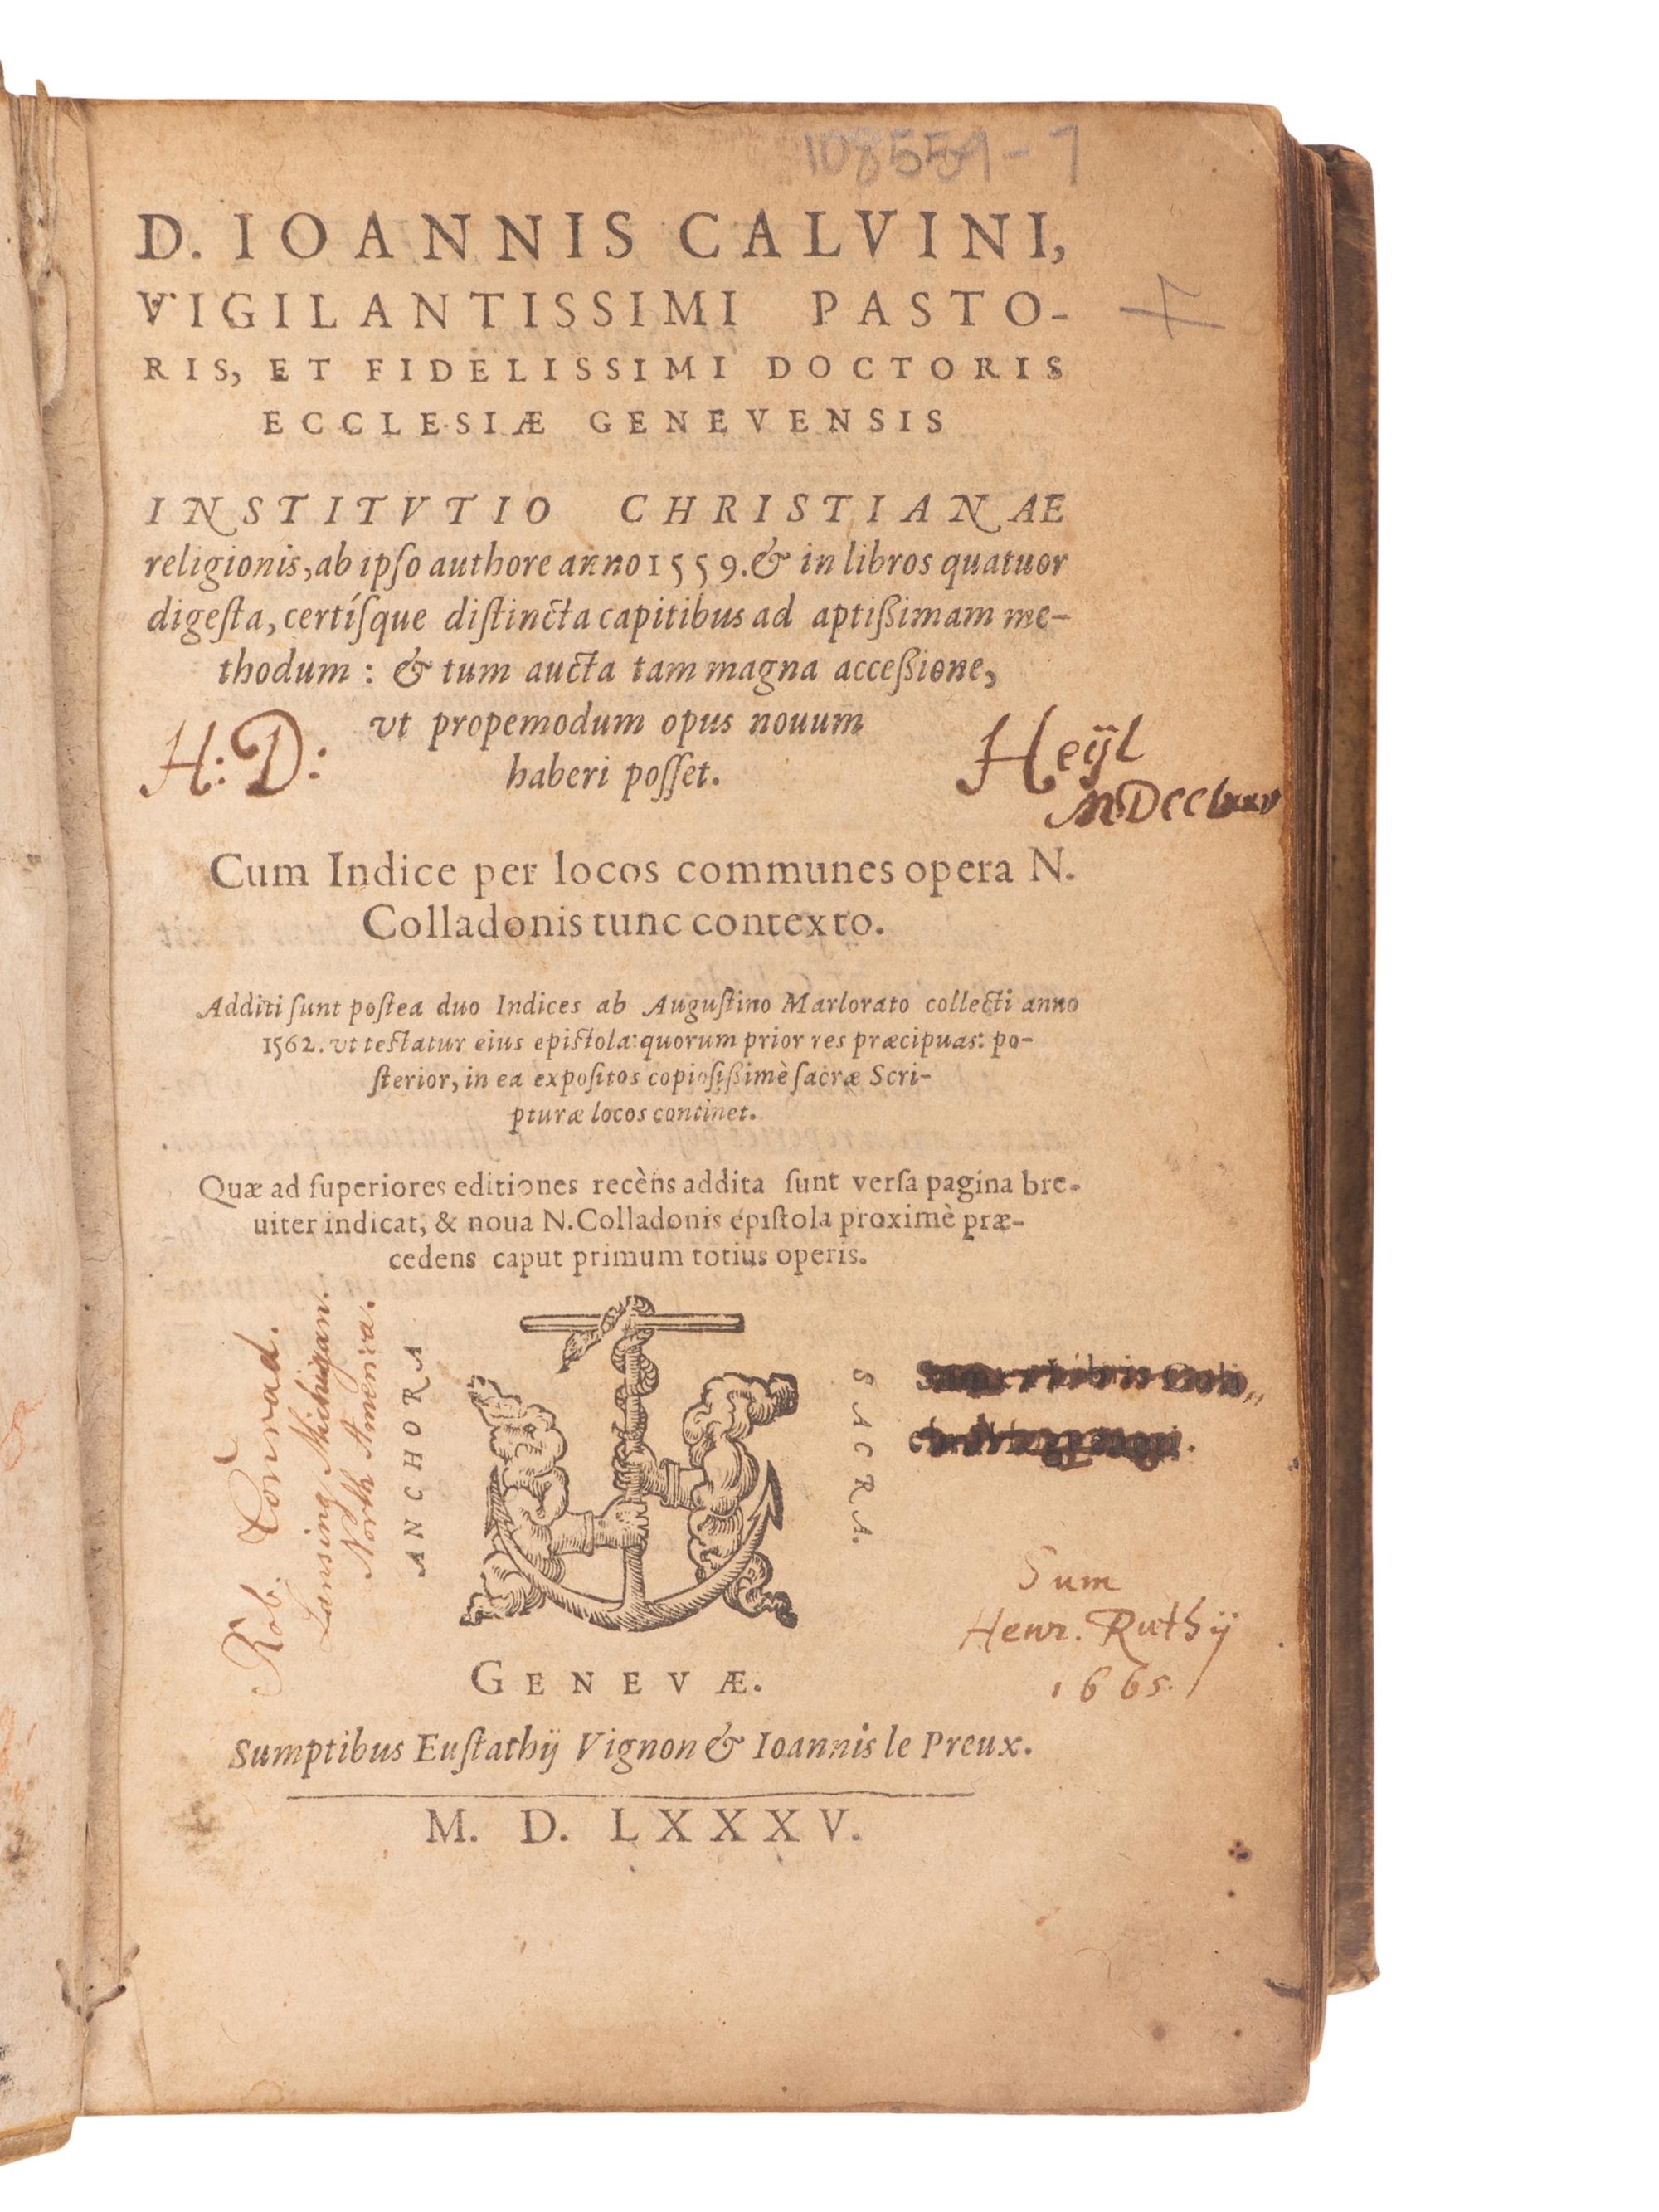 108551-7
D. IOANNIS CALVINI,
VIGILANTISSIMI PASTO-
RIS, ET FIDELISSIMI DOCTORIS
ECCLESIÆ GENEVENSIS
INSTITVTIO CHRISTIANAE
religionis, ab ipſo authore anno 1559. & in libros quatuor
digeſta, certíſque diſtincta capitibus ad aptißimam me-
thodum : & tum aucta tam magna acceßione,
vt propemodum opus nouum
haberi poſſet.
H: D:
Heÿl
MDCClxxv
Cum Indice per locos communes opera N.
Colladonis tunc contexto.
Additi ſunt poſtea duo Indices ab Auguſtino Marlorato collecti anno
1562. vt teſtatur eius epiſtola: quorum prior res præcipuas: po-
ſterior, in ea expoſitos copioſißimè ſacræ Scri-
pturæ locos continet.
Quæ ad ſuperiores editiones recèns addita ſunt verſa pagina bre-
uiter indicat, & noua N. Colladonis epiſtola proximè præ-
cedens caput primum totius operis.
Rob. Conrad.
Lansing, Michigan.
North America.
ANCHORA
SACRA.
Sum
Henr. Ruthÿ
1665.
GENEVÆ.
Sumptibus Euſtathij Vignon & Ioannis le Preux.
M. D. LXXXV.